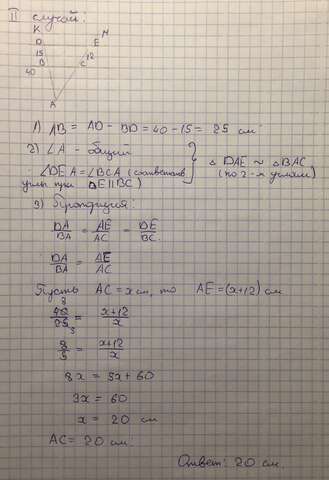 II случай:
K
D
M
E
15
12
B
C
40
A
1) AB = AD - BD = 40 - 15 = 25 см
2) ∠A - общий
∠DEA = ∠BCA (соответств.
углы при DE||BC)
△DAE ~ △BAC
(по 2-м углам)
3) Пропорция:
DA/BA = AE/AC = DE/BC.
DA/BA = AE/AC
Пусть AC = x см, то AE = (x+12) см
8
40/25 = x+12/x
5
8/5 = x+12/x
8x = 5x + 60
3x = 60
x = 20 см
AC = 20 см.
Ответ: 20 см.